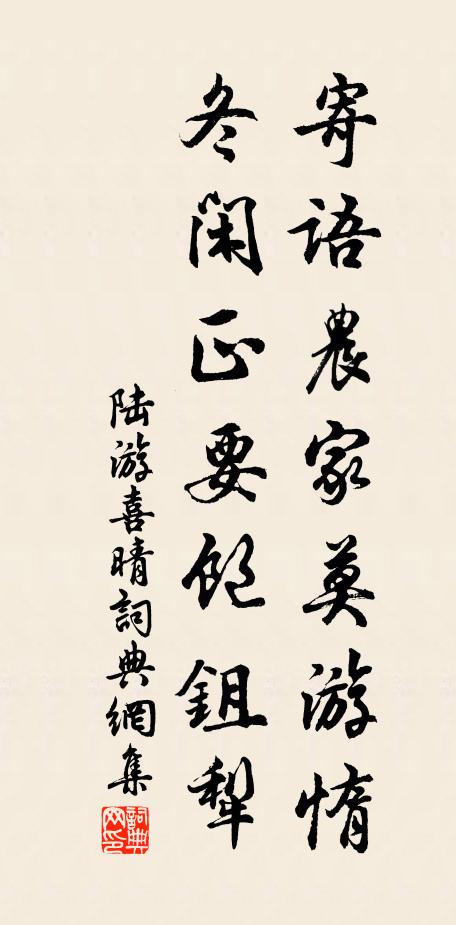 寄語農家莫游惰
冬閑正要飭鉏犁
陆游喜晴詞典網集
詞典网印